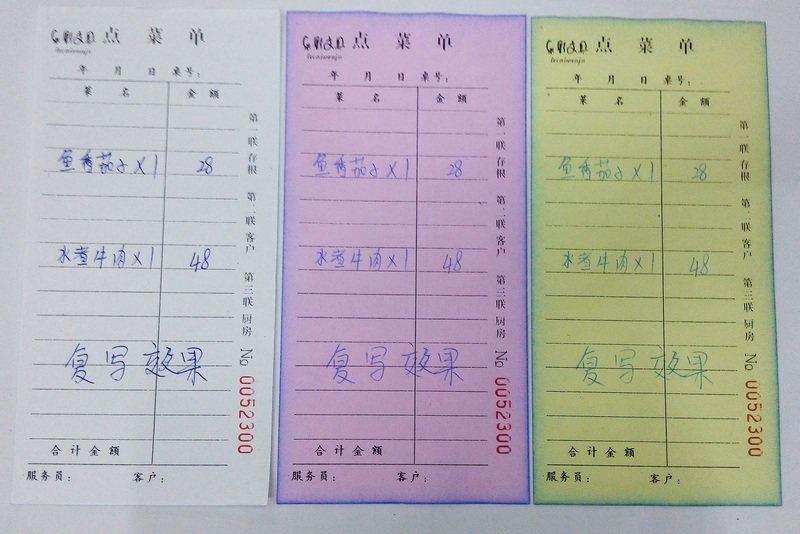 点 菜 单
年 月 日 桌号：
菜 名 金 额
鱼香茄子 X 1 28
水煮牛肉 X 1 48
复写效果
合计金额
服务员： 客户：
第一联存根 第二联客户 第三联厨房 No 0052300
点 菜 单
年 月 日 桌号：
菜 名 金 额
鱼香茄子 X 1 28
水煮牛肉 X 1 48
复写效果
合计金额
服务员： 客户：
第一联存根 第二联客户 第三联厨房 No 0052300
点 菜 单
年 月 日 桌号：
菜 名 金 额
鱼香茄子 X 1 28
水煮牛肉 X 1 48
复写效果
合计金额
服务员： 客户：
第一联存根 第二联客户 第三联厨房 No 0052300